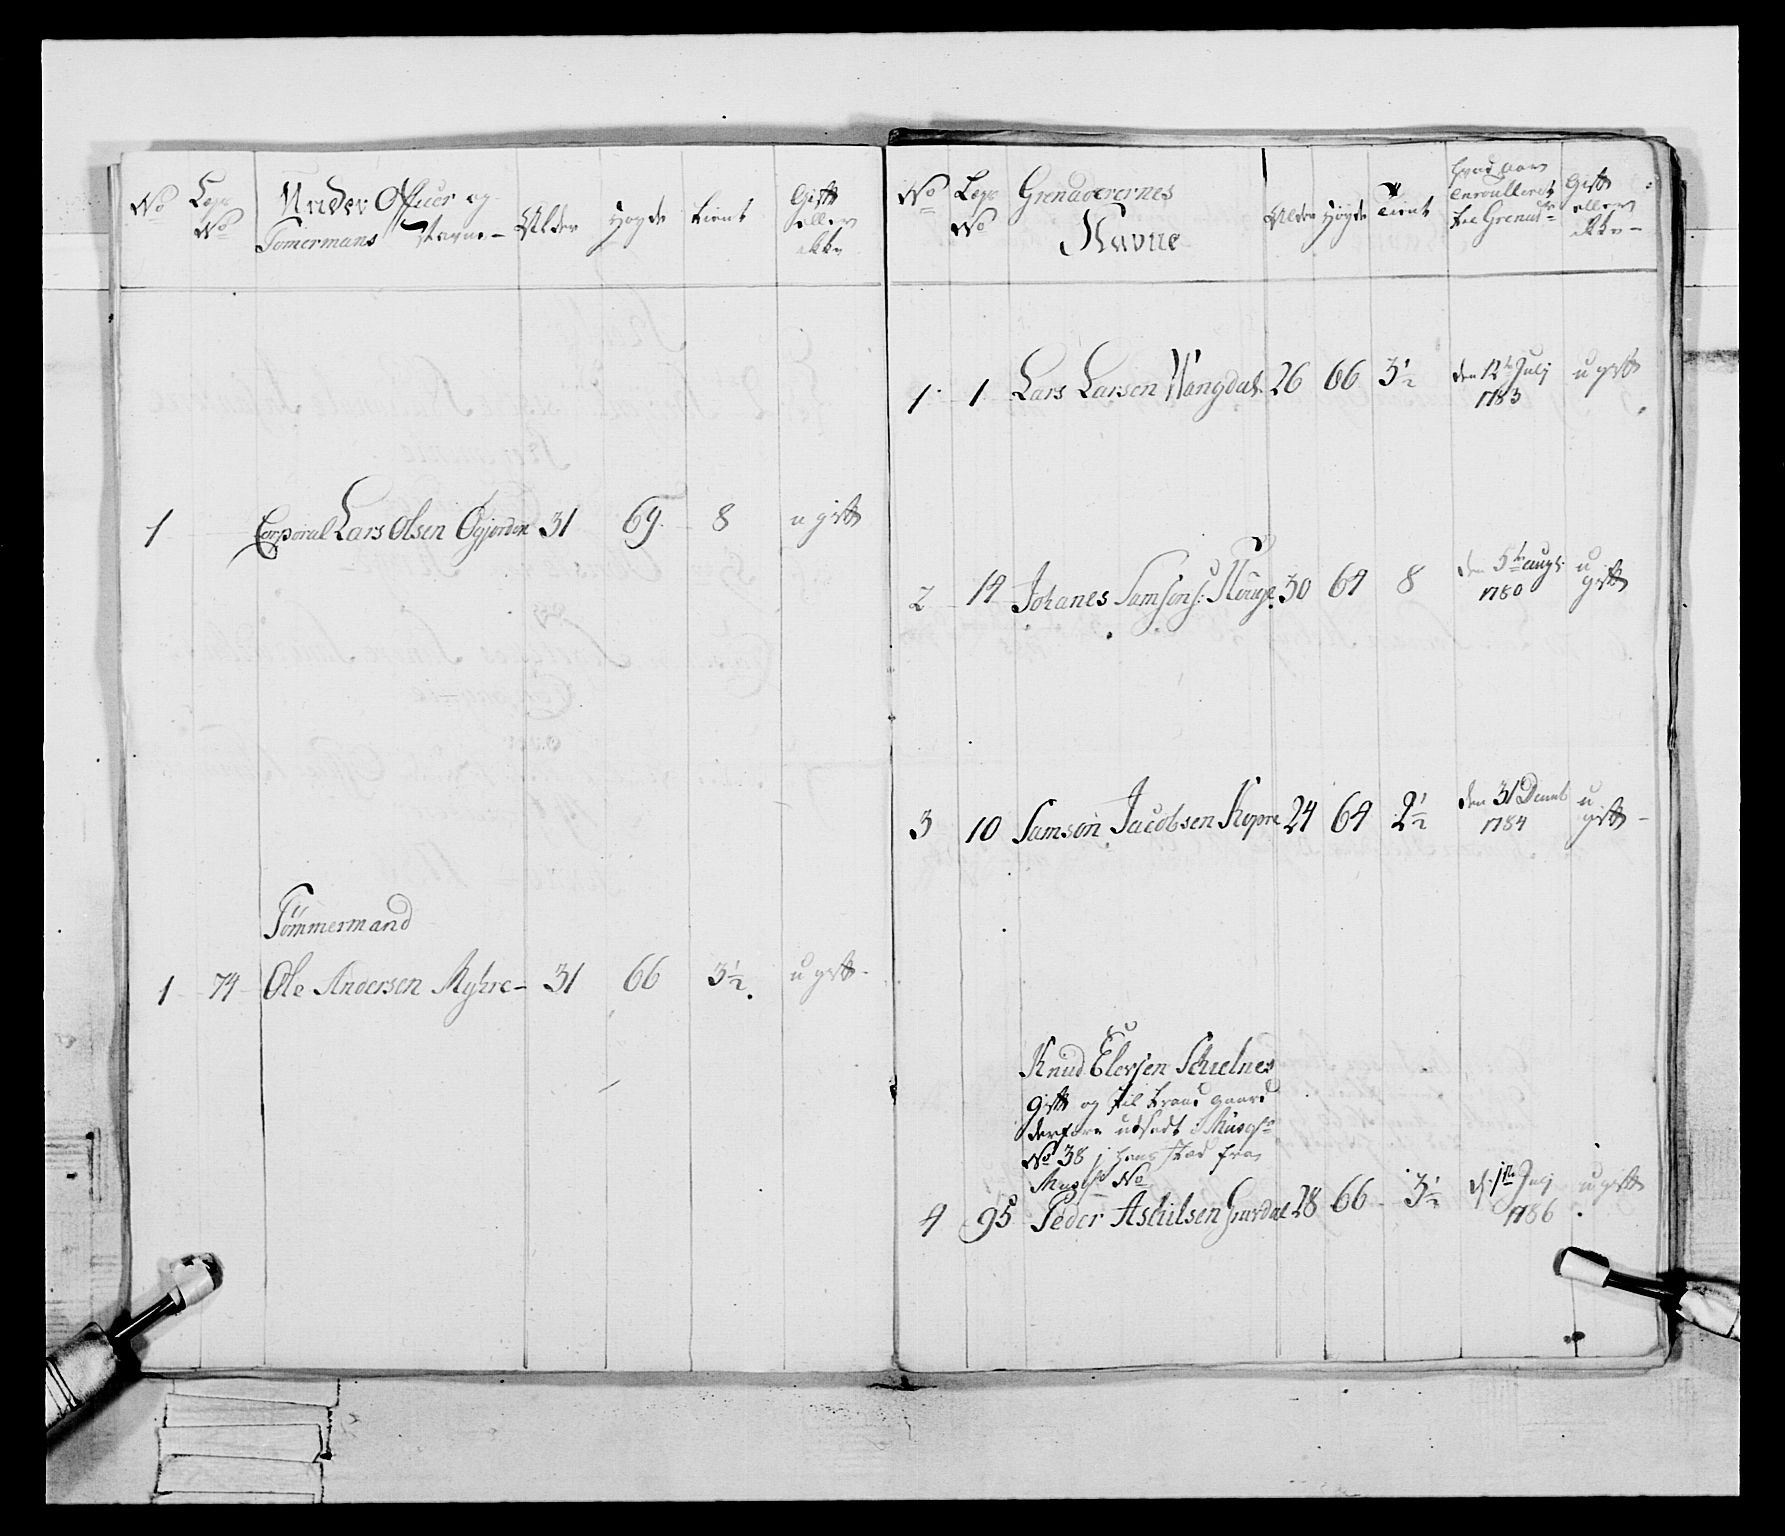 No Legs No Under Officier og Tømermans Navne Alder Høyde tient Gift eller ikke
1 Corporal Lars Olsen Øgjorden 31 69 8 u gift
Tömmermand
1 74 Ole Andersen Myhre 31 66 3½ u gift
No Legs No Grenaderernes Navne Alder Høyde Tient hvad aar enroulleret til Grenad: Gift eller ikke
1 1 Lars Larsen Wangdal 26 66 3½ den 12te Julj 1783 u gift
2 14 Johanes Samsons: Houge 30 64 8 den 5te augt: 1780 u gift
3 10 Samson Jacobsen 24 64 2½ den 31 Decmb 1784 u gift
Knud Elersen Schielnes
gift og til traad gaard
derfore udsadt i Musqs
No 38 j hans stæd fra
Musqs No
4 95 Peder Aschilsen 28 66 3½ d: 1te Julj 1786 u gift